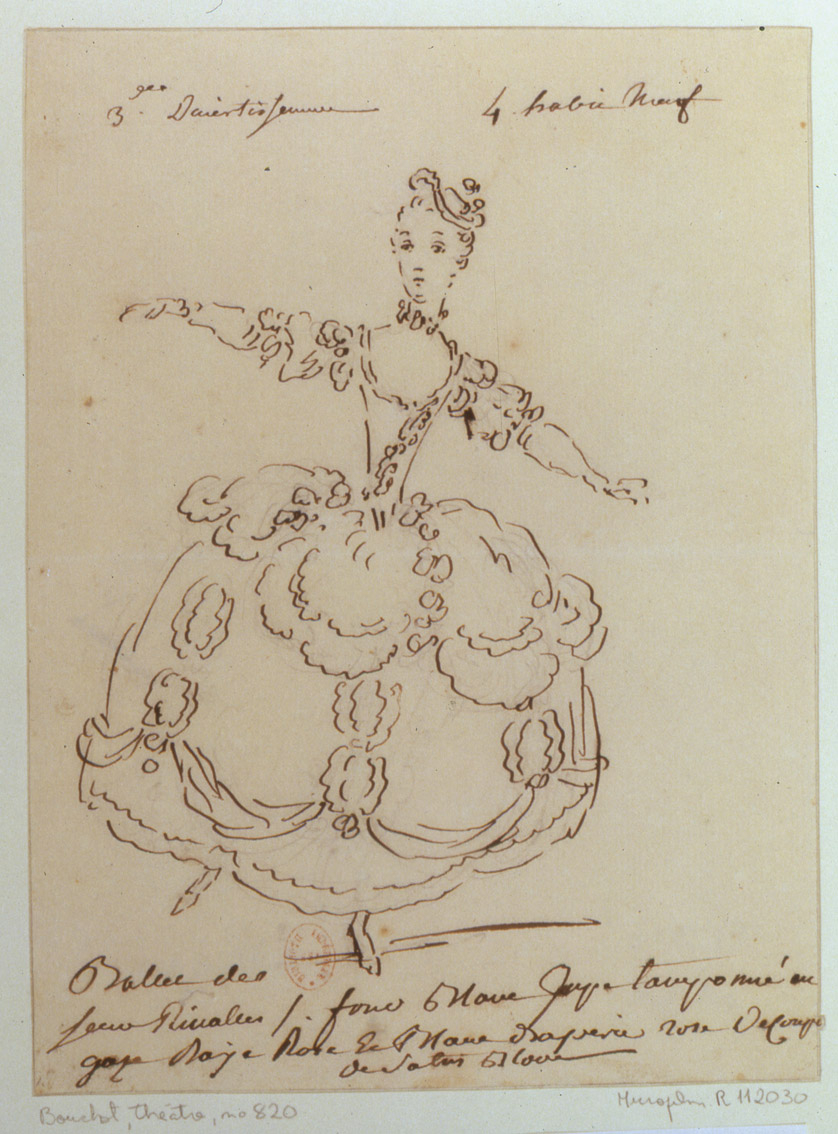 3.^eme Divertissemen
4 habit Neuf
Ballet des
fond Blanc Jupe tamponné en
gaze Rayé Rose Et Blanc draperie rose Decoupé
de Satin Blanc
Bouchot, théâtre, no 820
Microfilm R 112030